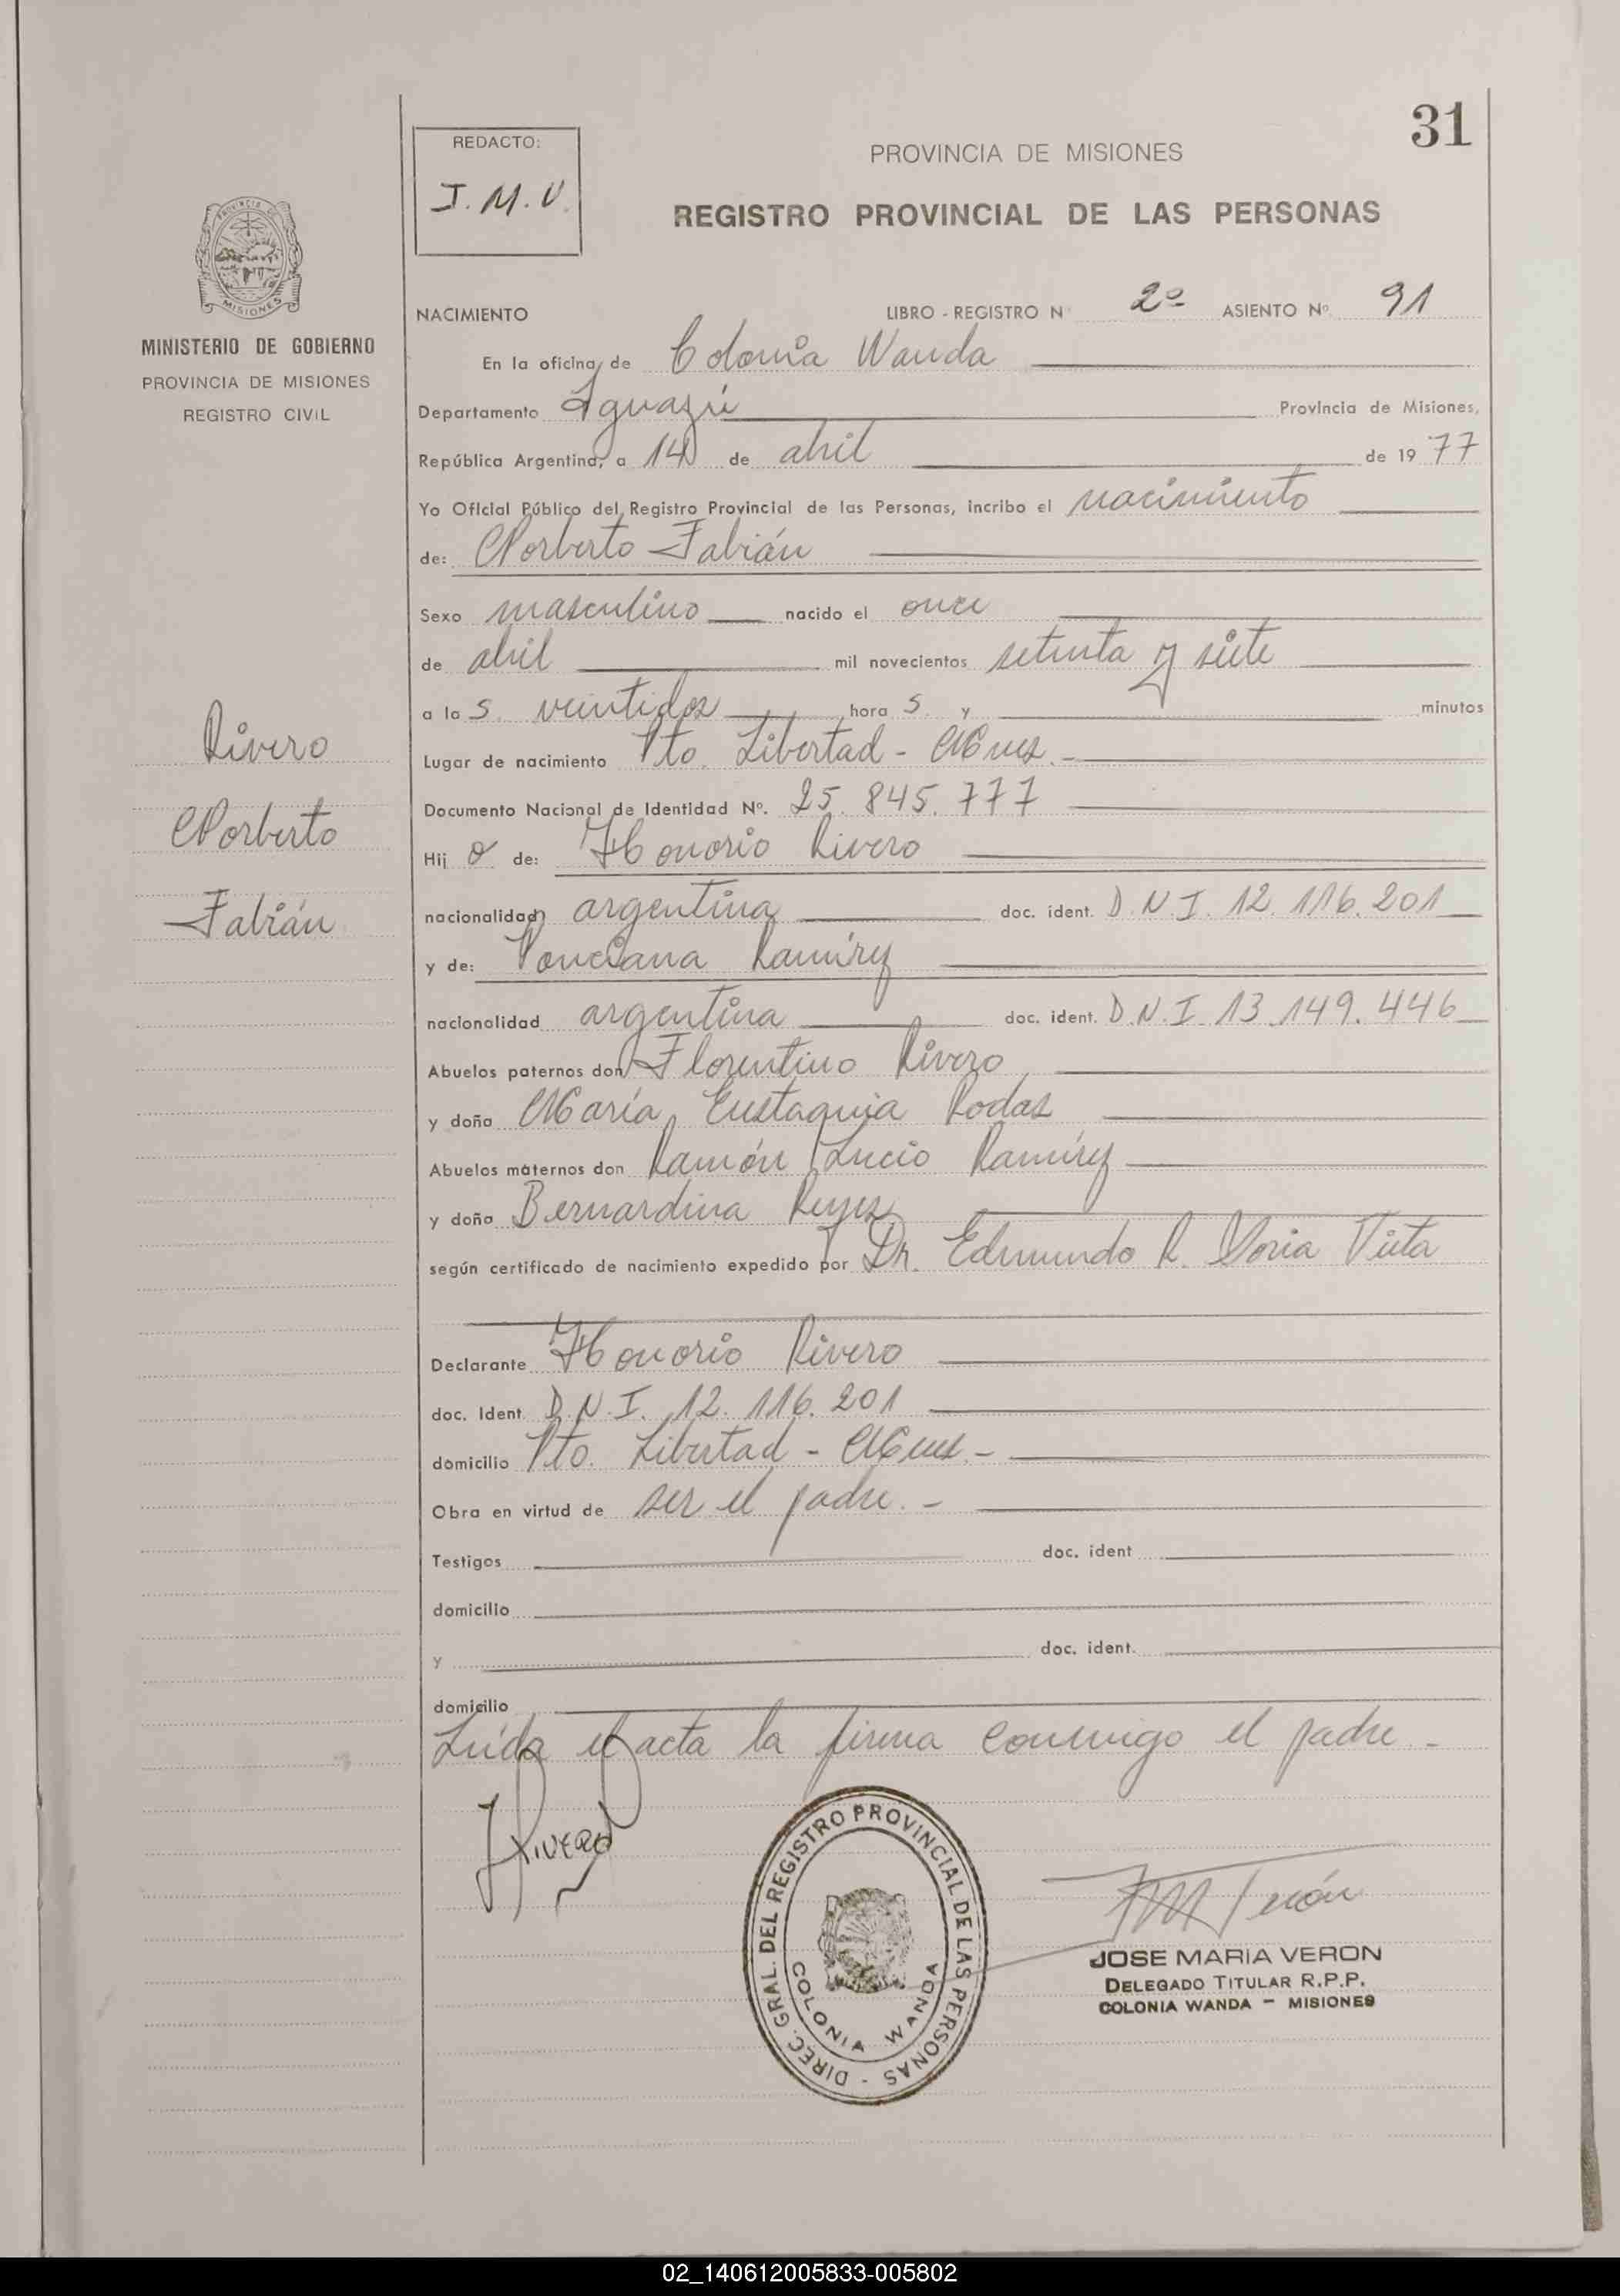 31
REDACTO:
J.M.V.
PROVINCIA DE MISIONES
REGISTRO PROVINCIAL DE LAS PERSONAS
MISIONES
MINISTERIO DE GOBIERNO
PROVINCIA DE MISIONES
REGISTRO CIVIL
NACIMIENTO LIBRO - REGISTRO N 2º ASIENTO Nº. 91
En la oficina de Colonia Wanda
Departamento Iguazú Provincia de Misiones,
República Argentina, a 14 de abril de 1977
Yo Oficial Público del Registro Provincial de las Personas, incribo el nacimiento
de: Norberto Fabián
Sexo masculino nacido el once
de abril mil novecientos setenta y siete
a la s. veintidos hora s. y minutos
Lugar de nacimiento Pto. Libertad - Mnes.-
Documento Nacional de Identidad Nº. 25.845.777
Hij o de: Honorio Rivero
nacionalidad argentina doc. ident. D.N.I. 12.116.201
y de: Ponciana Ramírez
nacionalidad argentina doc. ident. D.N.I. 13.149.446
Abuelos paternos don Florentino Rivero
y doña María Eustaquia Rodas
Abuelos maternos don Ramón Lucio Ramírez
y doña Bernardina Reyes
según certificado de nacimiento expedido por Dr. Edmundo R. Soria Vieta
Declarante Honorio Rivero
doc. Ident. D.N.I. 12.116.201
domicilio Pto. Libertad - Mnes.-
Obra en virtud de ser el padre.-
Testigos doc. ident
domicilio
y doc. ident.
domicilio
Leída el acta la firma conmigo el padre.-
Rivero
Norberto
Fabián
HRIVERO
DIREC. GRAL. DEL REGISTRO PROVINCIAL DE LAS PERSONAS -
COLONIA WANDA
JMVerón
JOSE MARIA VERON
DELEGADO TITULAR R.P.P.
COLONIA WANDA - MISIONES
02_140612005833-005802